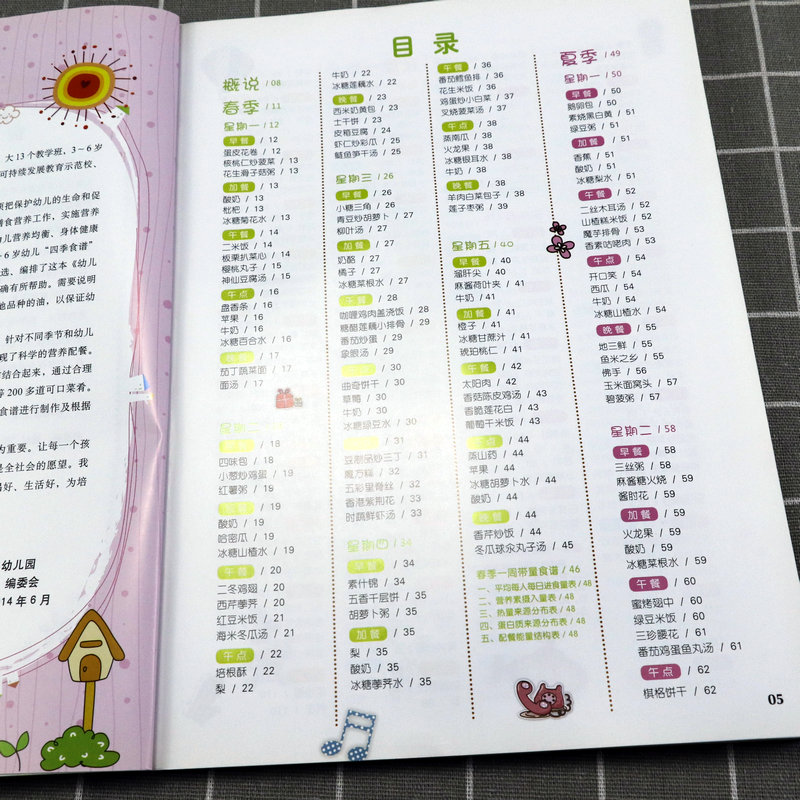 大13个教学班、3～6岁
可持续发展教育示范校、
把保护幼儿的生命和促
膳食营养工作，实施营养
儿营养均衡、身体健康
～6岁幼儿“四季食谱”
选、编排了这本《幼儿
确有所帮助。需要说明
他品种的油，以保证幼
针对不同季节和幼儿
现了科学的营养配餐。
结合起来，通过合理
等200多道可口菜肴。
食谱进行制作及根据
为重要。让每一个孩
是全社会的愿望。我
得好、生活好，为培
幼儿园
编委会
14年6月
目录
概说 / 08
春季 / 11
星期一 / 12
早餐 / 12
蛋皮花卷 / 12
核桃仁炒菠菜 / 13
花生滑子菇粥 / 13
加餐 / 13
酸奶 / 13
枇杷 / 13
冰糖菊花水 / 13
午餐 / 14
二米饭 / 14
板栗扒菜心 / 14
樱桃丸子 / 15
神仙豆腐汤 / 15
午点 / 16
盘香条 / 16
苹果 / 16
牛奶 / 16
冰糖百合水 / 16
晚餐 / 17
茄丁蔬菜面 / 17
面汤 / 17
星期二 / 18
早餐 / 18
四味包 / 18
小葱炒鸡蛋 / 19
红薯粥 / 19
加餐 / 19
酸奶 / 19
哈密瓜 / 19
冰糖山楂水 / 19
午餐 / 20
二冬鸡翅 / 20
西芹荸荠 / 20
红豆米饭 / 21
海米冬瓜汤 / 21
午点 / 22
培根酥 / 22
梨 / 22
牛奶 / 22
冰糖莲藕水 / 22
晚餐 / 23
西米奶黄包 / 23
土干饼 / 23
皮箱豆腐 / 24
虾仁炒彩瓜 / 25
鲢鱼笋干汤 / 25
星期三 / 26
早餐 / 26
小糖三角 / 26
青豆炒胡萝卜 / 27
柳叶汤 / 27
加餐 / 27
奶酪 / 27
橘子 / 27
冰糖菜根水 / 27
午餐 / 28
咖喱鸡肉盖浇饭 / 28
糖醋莲藕小排骨 / 29
番茄炒蛋 / 29
象眼汤 / 29
午点 / 30
曲奇饼干 / 30
草莓 / 30
牛奶 / 30
冰糖绿豆水 / 30
晚餐 / 31
豆制品炒三丁 / 31
魔方糕 / 32
五彩里脊丝 / 32
香港紫荆花 / 33
时蔬鲜虾汤 / 33
星期四 / 34
早餐 / 34
素什锦 / 34
五香千层饼 / 34
胡萝卜粥 / 35
加餐 / 35
梨 / 35
酸奶 / 35
冰糖荸荠水 / 35
午餐 / 36
番茄鳕鱼排 / 36
花生米饭 / 37
鸡蛋炒小白菜 / 37
叉烧菠菜汤 / 37
午点 / 38
蒸南瓜 / 38
火龙果 / 38
冰糖银耳水 / 38
牛奶 / 38
晚餐 / 38
羊肉白菜包子 / 38
莲子枣粥 / 39
星期五 / 40
早餐 / 40
溜肝尖 / 40
麻酱荷叶夹 / 41
牛奶 / 41
加餐 / 41
橙子 / 41
冰糖甘蔗汁 / 41
琥珀桃仁 / 41
午餐 / 42
太阳肉 / 42
香菇陈皮鸡汤 / 43
香脆莲花白 / 43
葡萄干米饭 / 43
午点 / 44
蒸山药 / 44
苹果 / 44
冰糖胡萝卜水 / 44
酸奶 / 44
晚餐 / 44
香芹炒饭 / 44
冬瓜球汆丸子汤 / 45
春季一周带量食谱 / 46
一、平均每人每日进食量表 / 48
二、营养素摄入量表 / 48
三、热量来源分布表 / 48
四、蛋白质来源分布表 / 48
五、配餐能量结构表 / 48
夏季 / 49
星期一 / 50
早餐 / 50
鹅卵包 / 50
素烧黑白黄 / 51
绿豆粥 / 51
加餐 / 51
香蕉 / 51
酸奶 / 51
冰糖梨水 / 51
午餐 / 52
二丝木耳汤 / 52
山楂糕米饭 / 52
魔芋排骨 / 53
香素咕咾肉 / 53
午点 / 54
开口笑 / 54
西瓜 / 54
牛奶 / 54
冰糖山楂水 / 54
晚餐 / 55
地三鲜 / 55
鱼米之乡 / 55
佛手 / 56
玉米面窝头 / 57
碧菠粥 / 57
星期二 / 58
早餐 / 58
三丝粥 / 58
麻酱糖火烧 / 59
酱肘花 / 59
加餐 / 59
火龙果 / 59
酸奶 / 59
冰糖菜根水 / 59
午餐 / 60
蜜烤翅中 / 60
绿豆米饭 / 60
三珍腰花 / 61
番茄鸡蛋鱼丸汤 / 61
午点 / 62
棋格饼干 / 62
05